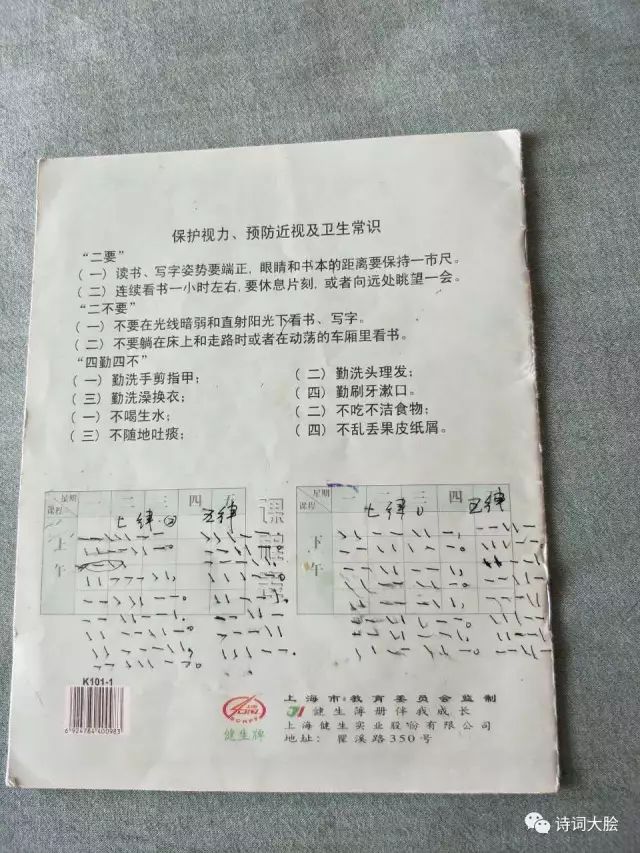 保护视力、预防近视及卫生常识
“二要”
(一) 读书、写字姿势要端正, 眼睛和书本的距离要保持一市尺。
(二) 连续看书一小时左右, 要休息片刻, 或者向远处眺望一会。
“二不要”
(一) 不要在光线暗弱和直射阳光下看书、写字。
(二) 不要躺在床上和走路时或者在动荡的车厢里看书。
“四勤四不”
(一) 勤洗手剪指甲; (二) 勤洗头理发;
(三) 勤洗澡换衣; (四) 勤刷牙漱口。
(一) 不喝生水; (二) 不吃不洁食物;
(三) 不随地吐痰; (四) 不乱丢果皮纸屑。
星期 一 二 三 四 五
课程
七律② 五律
上午
课程表
星期 一 二 三 四
课程
七律① 五律
下午
K101-1
6 924784 400983
健生牌
上海市教育委员会监制
健生簿册伴我成长
上海健生实业股份有限公司
地址: 瞿溪路350号
诗词大脍